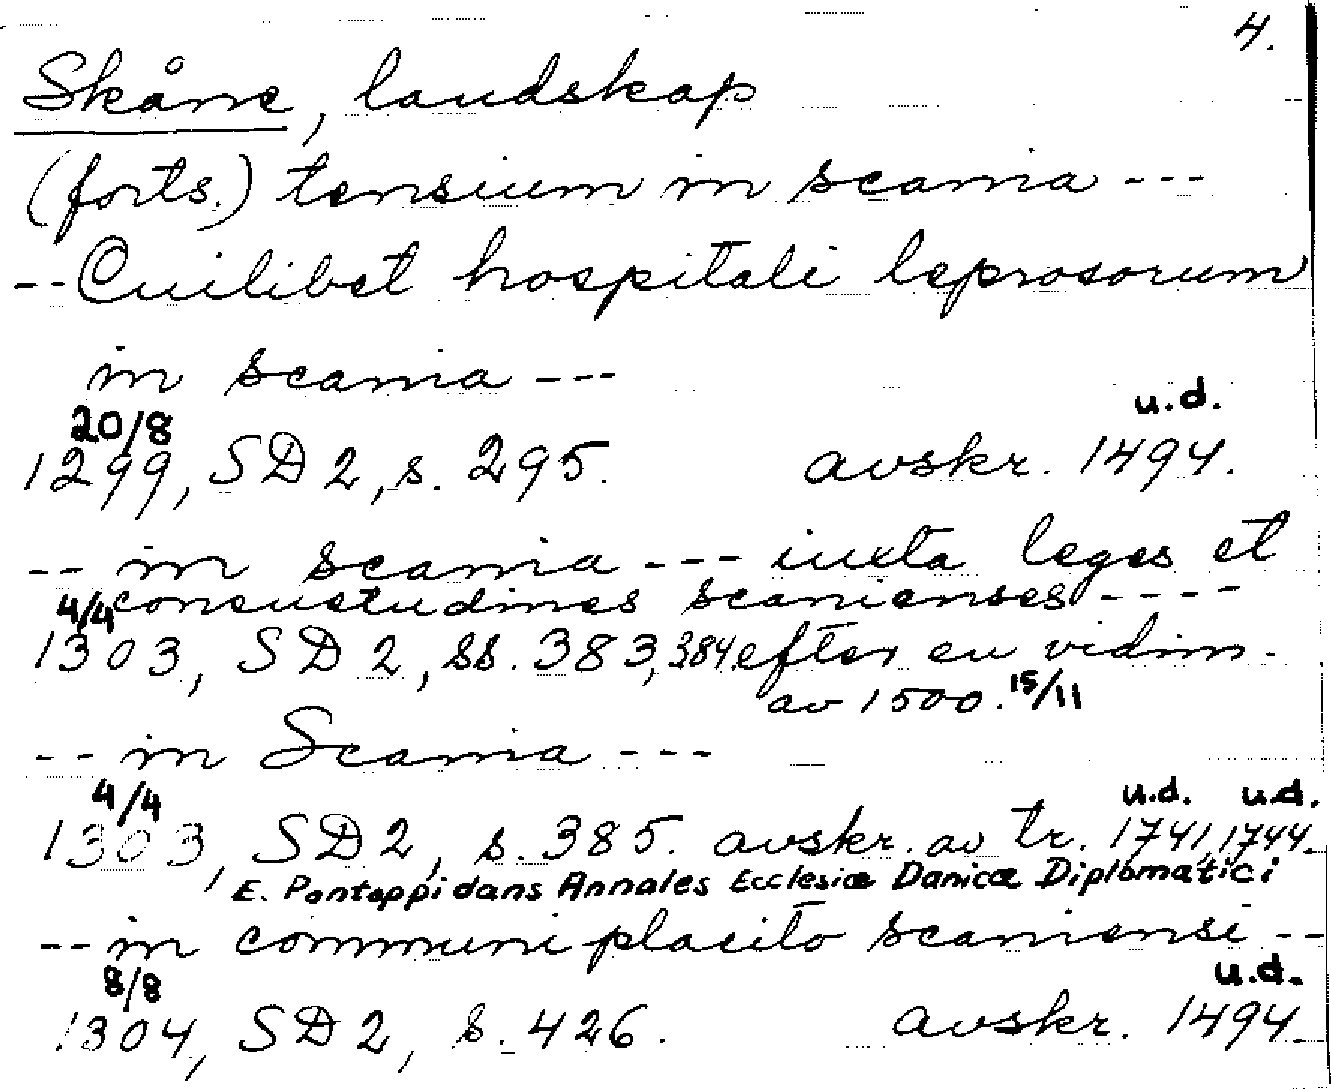 4.
Skåne, landskap
(forts.) tensium in scania ---
--Cuilibet hospitali leprosorum
in scania ---
20/8 u.d.
1299, SD 2, s. 295. avskr. 1494.
-- in scania --- iuxta leges et
4/4 consuetudines scanienses ----
1303, SD 2, ss. 383, 384 efter en vidim.
av 1500. 15/11
-- in Scania ---
4/4 u.d. u.d.
1303, SD 2, s. 385. avskr. av tr. 1741, 1744.
/ E. Pontoppidans Annales Ecclesiæ Danicæ Diplomatici
-- in communi placito scaniensi --
8/8 u.d.
1304, SD 2, s. 426. avskr. 1494.